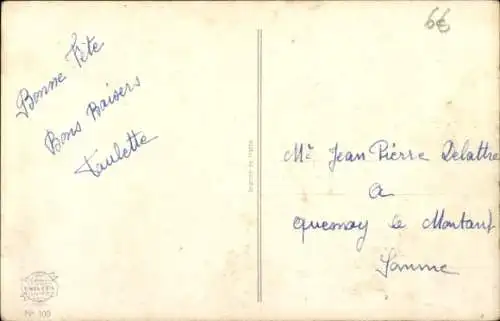 6€
Bonne Fête
Bons Baisers
Paulette
Mr Jean Pierre Delattre
a
Quesnoy le Montant
Somme
Nº 100